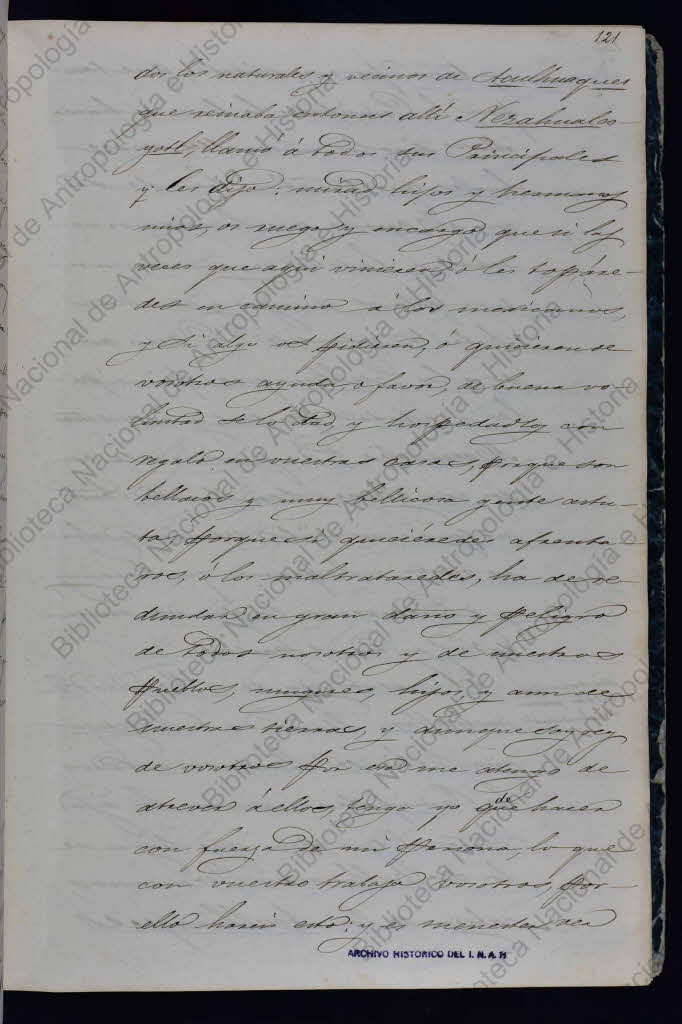 121
dos los naturales y vecinos de Aculhuaques
que reinaba entonces allí Nezahualco-
yotl, llamó á todos sus Principales
y les dijo: mirad hijos y hermanos
mios, os ruego y encargo que si las
veces que aqui vinieren ó les topáre-
des en camino á los mexicanos,
y si algo os pidieren, ó quisieren de
vosotros ayuda, o favor, de buena vo-
luntad se lo dad, y hospedadlos con
regalo en vuestras casas, porque son
bellacos y muy bellicosa gente astu-
ta, porque si quisiéredes afrenta-
ros, ó los maltrataredes, ha de re-
dundar en gran daño y peligro
de todos nosotros y de nuestros
Pueblos, mugeres, hijos y aun de
nuestras tierras, y aunque soy rey
de vosotros por eso me atengo de
atrever á ellos, tengo yo de
que hacer
con fuerza de mi Persona, lo que
con vuestro trabajo vosotros, por
ello hareis esto; y es menester ver
ARCHIVO HISTORICO DEL I. N. A. H
Biblioteca Nacional de Antropología e Historia